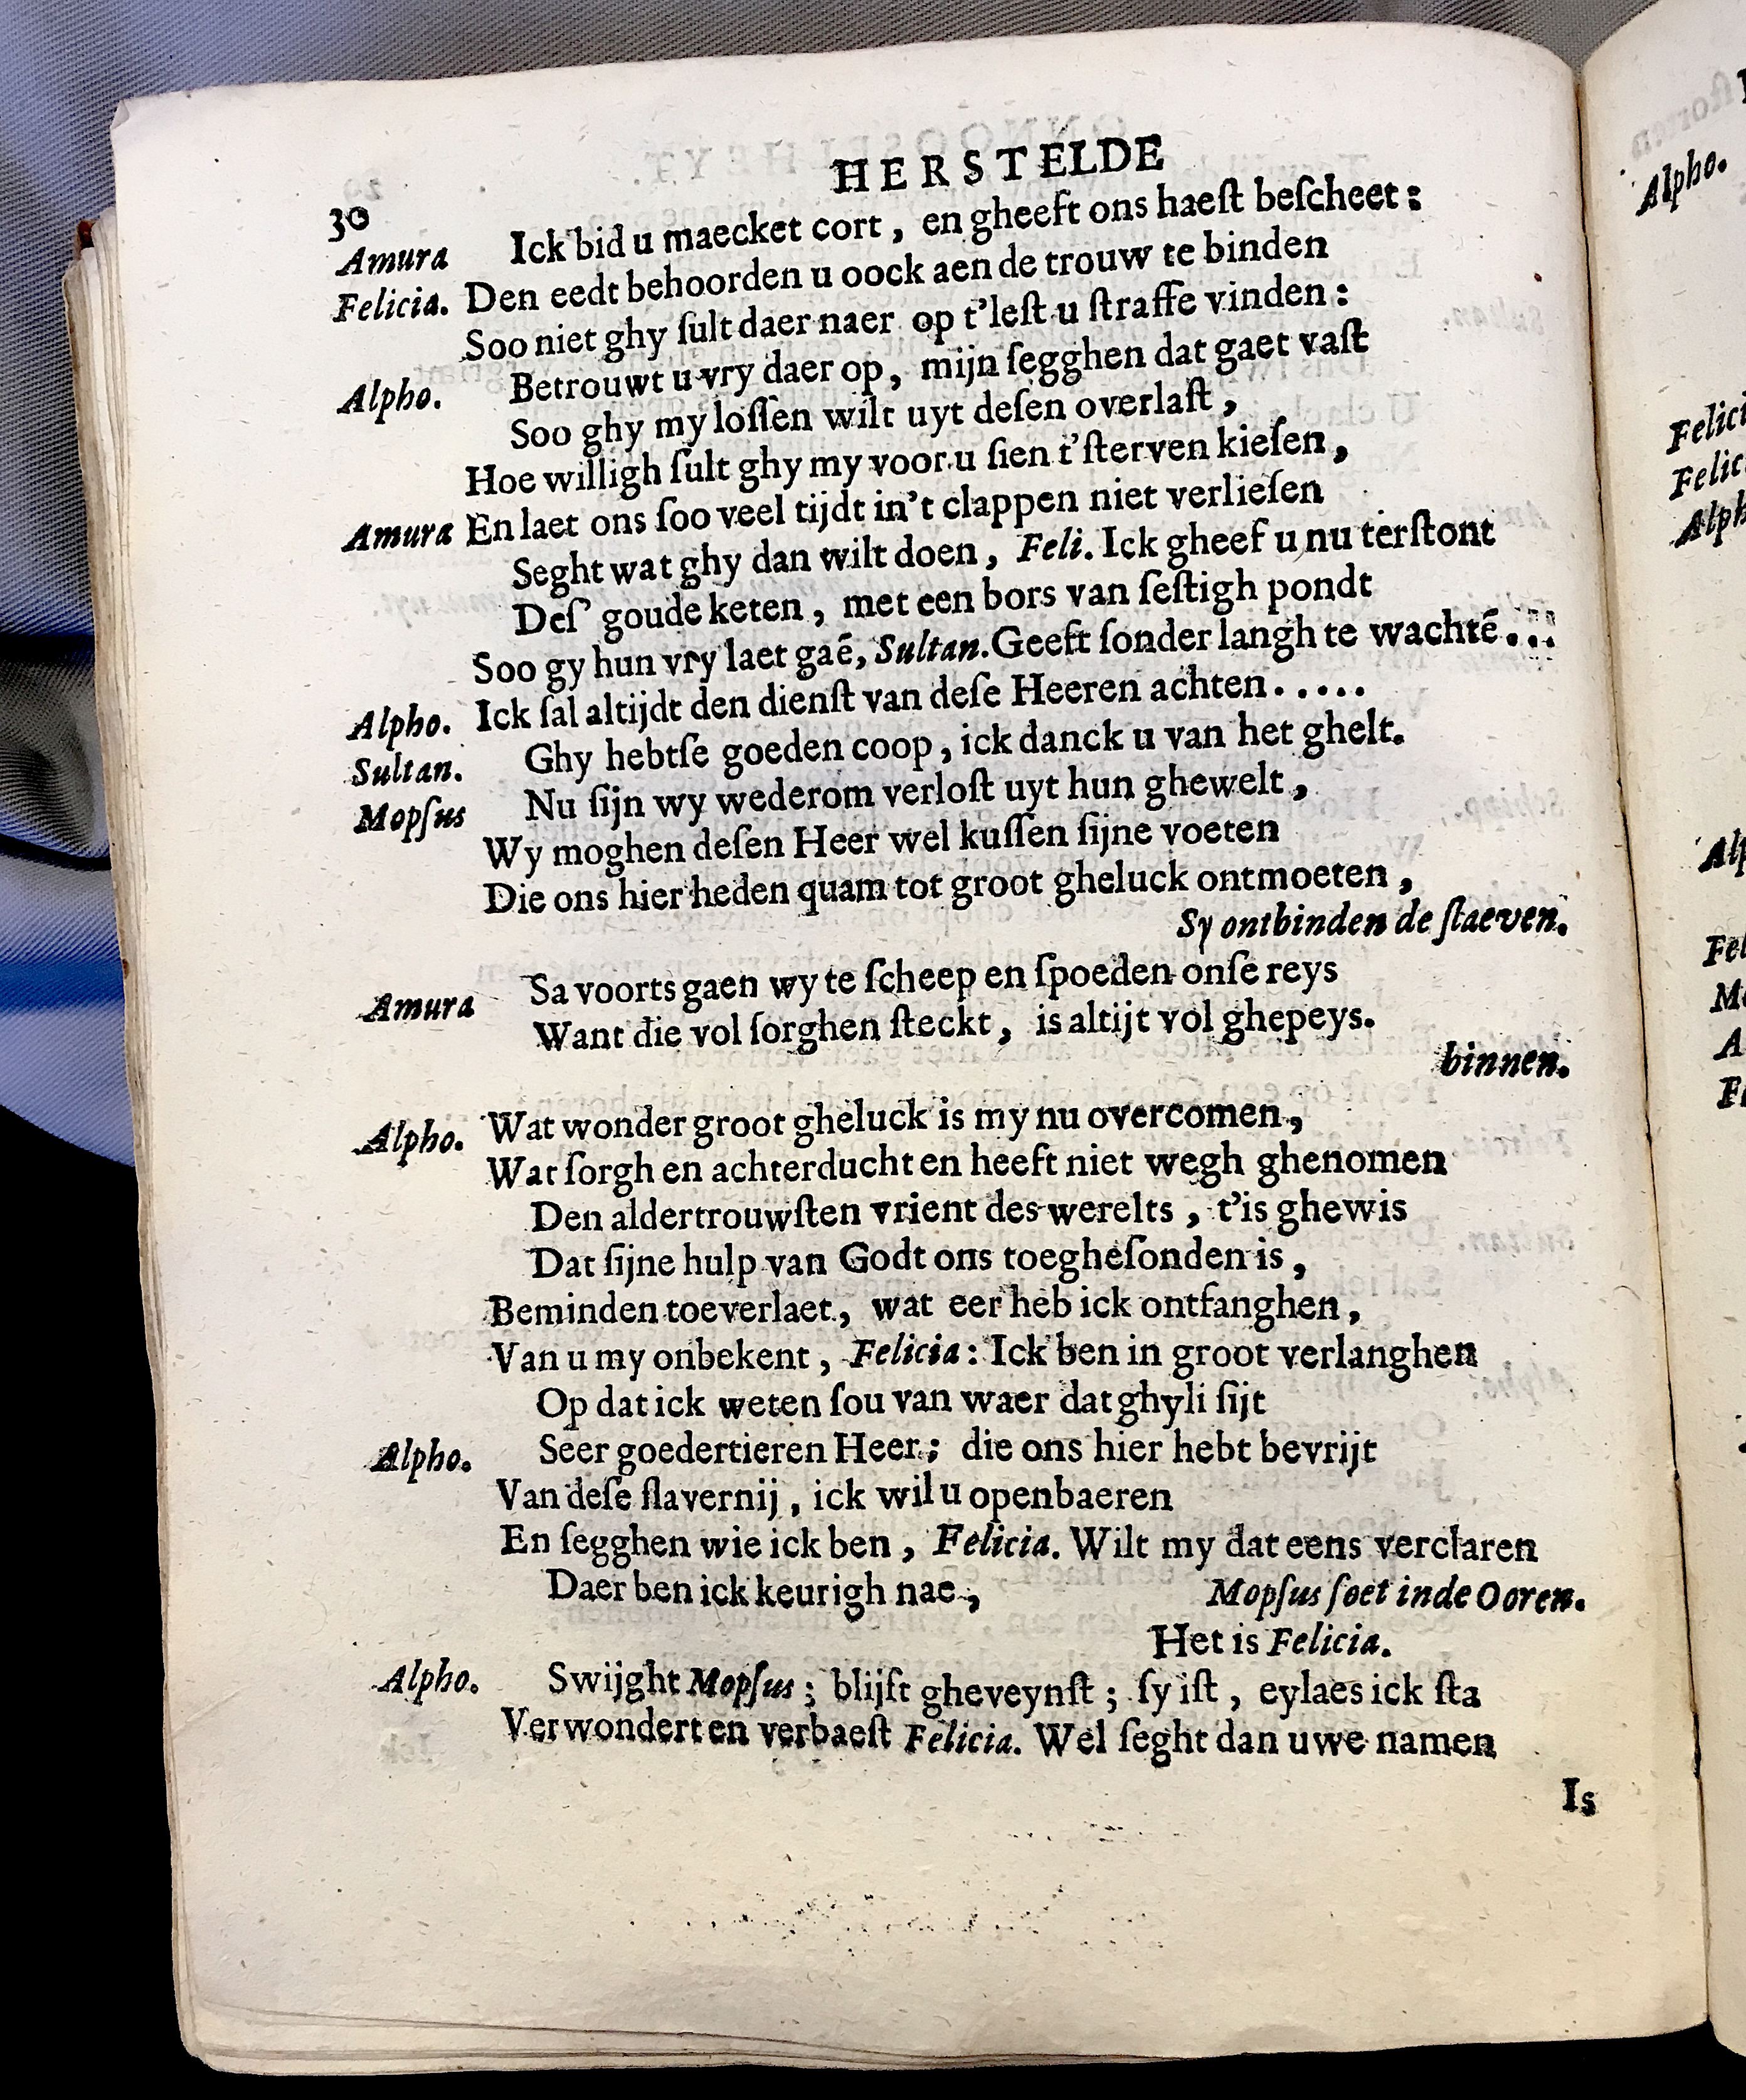 HERSTELDE
30
Amura Ick bid u maecket cort, en gheeft ons haeſt beſcheet:
Felicia. Den eedt behoorden u oock aen de trouw te binden
Soo niet ghy ſult daer naer op t'leſt u ſtraffe vinden:
Alpho. Betrouwt u vry daer op, mijn ſegghen dat gaet vaſt
Soo ghy my loſſen wilt uyt deſen overlaſt,
Hoe willigh ſult ghy my voor u ſien t'ſterven kieſen,
Amura En laet ons ſoo veel tijdt in't clappen niet verlieſen
Seght wat ghy dan wilt doen, Feli. Ick gheef u nu terſtont
Deſ' goude keten, met een bors van ſeſtigh pondt
Soo gy hun vry laet gaē, Sultan. Geeft ſonder langh te wachtē...
Alpho. Ick ſal altijdt den dienſt van deſe Heeren achten.....
Sultan. Ghy hebtſe goeden coop, ick danck u van het ghelt.
Mopſus Nu ſijn wy wederom verloſt uyt hun ghewelt,
Wy moghen deſen Heer wel kuſſen ſijne voeten
Die ons hier heden quam tot groot gheluck ontmoeten,
Sy ontbinden de ſlaeven.
Amura Sa voorts gaen wy te ſcheep en ſpoeden onſe reys
Want die vol ſorghen ſteckt, is altijt vol ghepeys.
binnen.
Alpho. Wat wonder groot gheluck is my nu overcomen,
Wat ſorgh en achterducht en heeft niet wegh ghenomen
Den aldertrouwſten vrient des werelts, t'is ghewis
Dat ſijne hulp van Godt ons toegheſonden is,
Beminden toeverlaet, wat eer heb ick ontfanghen,
Van u my onbekent, Felicia: Ick ben in groot verlanghen
Op dat ick weten ſou van waer dat ghyli ſijt
Alpho. Seer goedertieren Heer; die ons hier hebt bevrijt
Van deſe ſlavernij, ick wil u openbaeren
En ſegghen wie ick ben, Felicia. Wilt my dat eens verclaren
Daer ben ick keurigh nae, Mopſus ſoet inde Ooren.
Het is Felicia.
Alpho. Swijght Mopſus; blijft gheveynſt; ſy iſt, eylaes ick ſta
Verwondert en verbaeſt Felicia. Wel ſeght dan uwe namen
Is
Alpho.